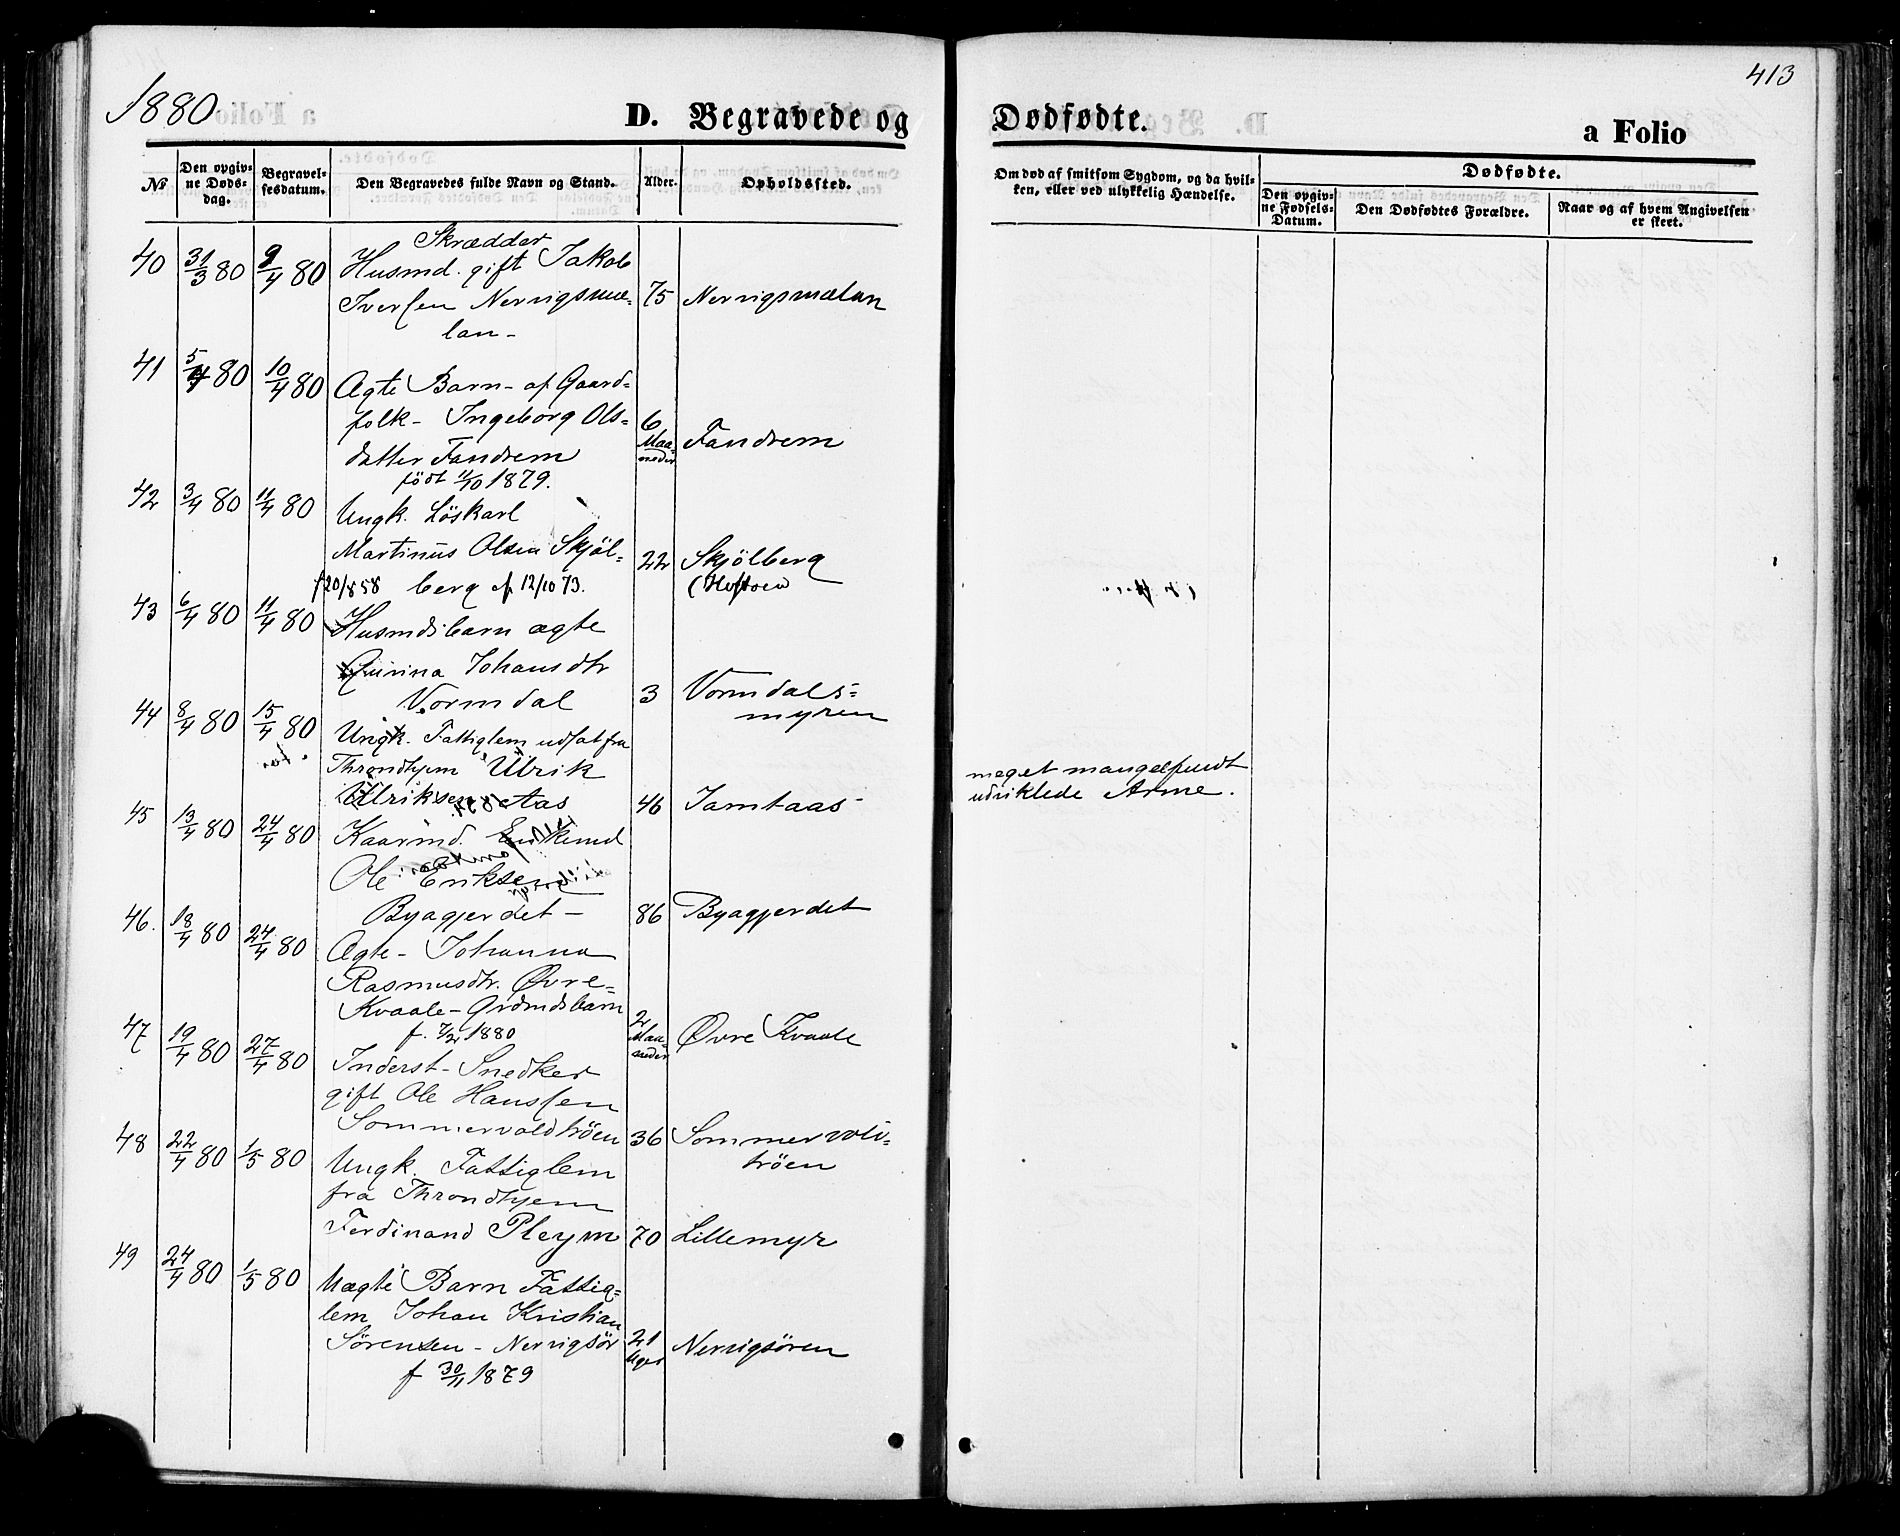 1880
D. Begravede og
Dødfødte.
413
a Folio
№
Den opgiv-
ne Døds-
dag.
Begravel-
sesdatum.
Den Begravedes fulde Navn og Stand.
Alder.
Opholdssted.
Om død af smitsom Sygdom, og da hvil-
ken, eller ved ulykkelig Hændelse.
Dødfødte.
Den opgiv-
ne Fødsels-
Datum.
Den Dødfødtes Forældre.
Naar og af hvem Angivelsen
er skeet.
Skrædder
40 31/3 80 9/4 80 Husmd. gift Jakob
Iversen Nervigsmæ- 75 Nervigsmælan
lan-
41 5/4 80 10/4 80 Ægte Barn- af Gaard-
folk- Ingeborg Ols- 6
datter Fandrem Maa-neder Fandrem
födt 11/10 1879.
42 3/4 80 11/4 80 Ungk. Löskarl
Martinus Olsen Skjöl- 22 Skjölberg
f 20/8 58 berg 12/10 73. (Hoftoen
43 6/4 80 11/4 80 Husmdsbarn ægte
Johansdtr
Vormdal 3 Vormdals-
myren
44 8/4 80 15/4 80 Ungk. Fattiglem udsat fra
Throndhjem Ulrik
Ulriksen Aas 46 Jamtaas
meget mangelfuldt
udviklede Arme.
45 13/4 80 24/4 80 Kaarmd. Enkemd
Ole Eriksen
Byagjerdet- 86 Byagjerdet
46. 18/4 80 24/4 80 Ægte- Johanna
Rasmusdtr. Øvre-
Kvaale- Grdmdsbarn 2
f. 7/2 1880 Maa-neder Øvre Kvaale
47 19/4 80 27/4 80 Inderst- Snedker
gift Ole Hanssen
Sommervoldtröen 36 Sommervold-
tröen
48 22/4 80 1/5 80 Ungk. Fattiglem
fra Throndhjem
Ferdinand Pleym 70 Lillemyr
49 24/4 80 1/5 80 Uægte Barn Fattig-
lem Johan Kristian
Sörensen- Nervigsör 21 Uger Nervigsören
f 30/11 1879